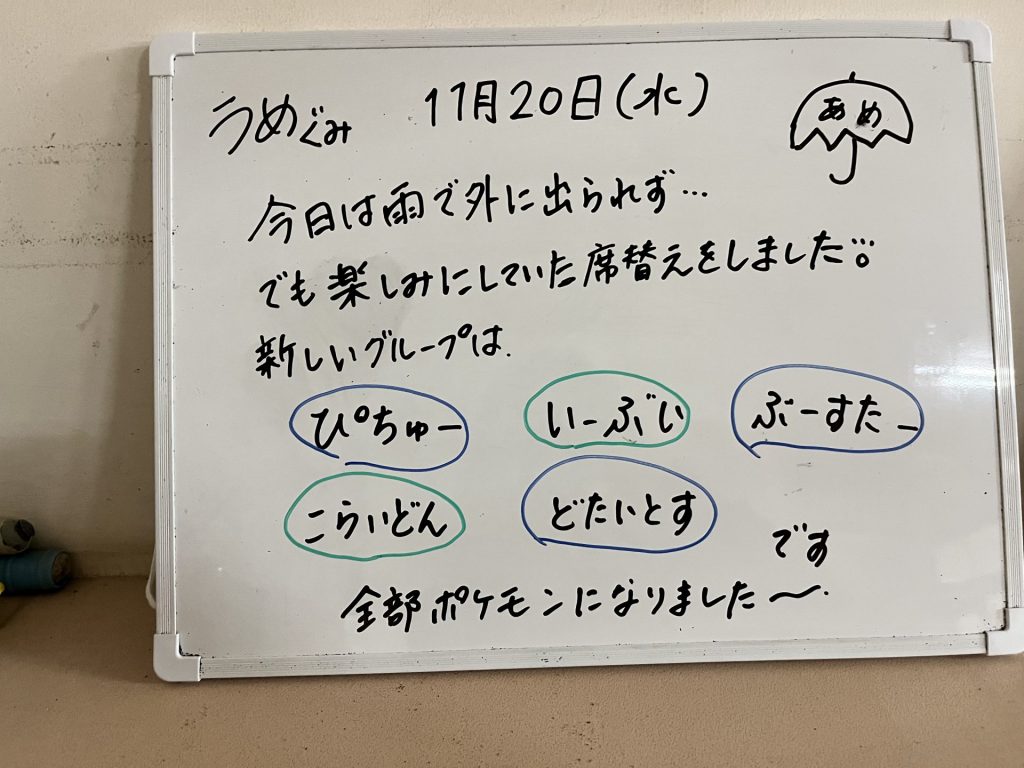 うめぐみ 11月20日(水) あめ
今日は雨で外に出られず…
でも楽しみにしていた席替えをしました!!
新しいグループは、
ぴちゅー いーぶい ぶーすたー
こらいどん どたいとす
です
全部ポケモンになりました〜.